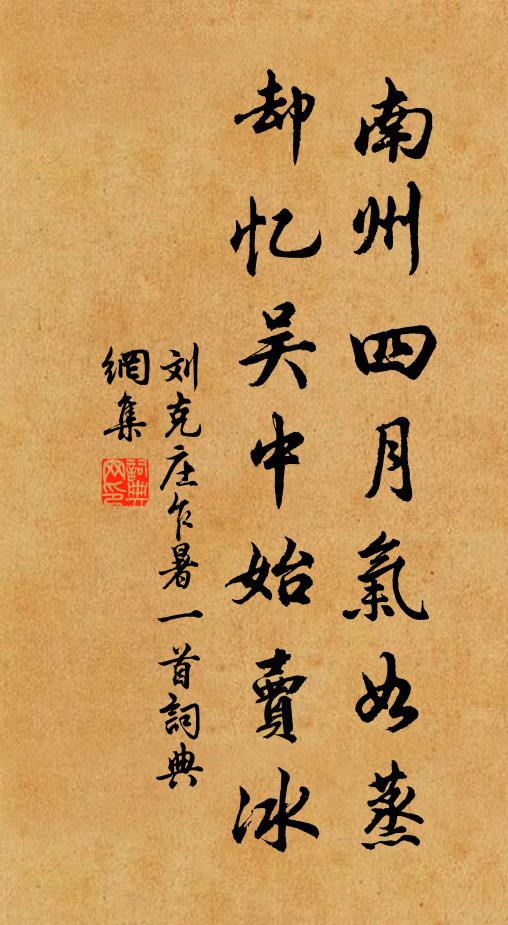 南州四月氣如蒸
却忆吴中始賣冰
刘克庄乍暑一首詞典
網集
詞典
网印